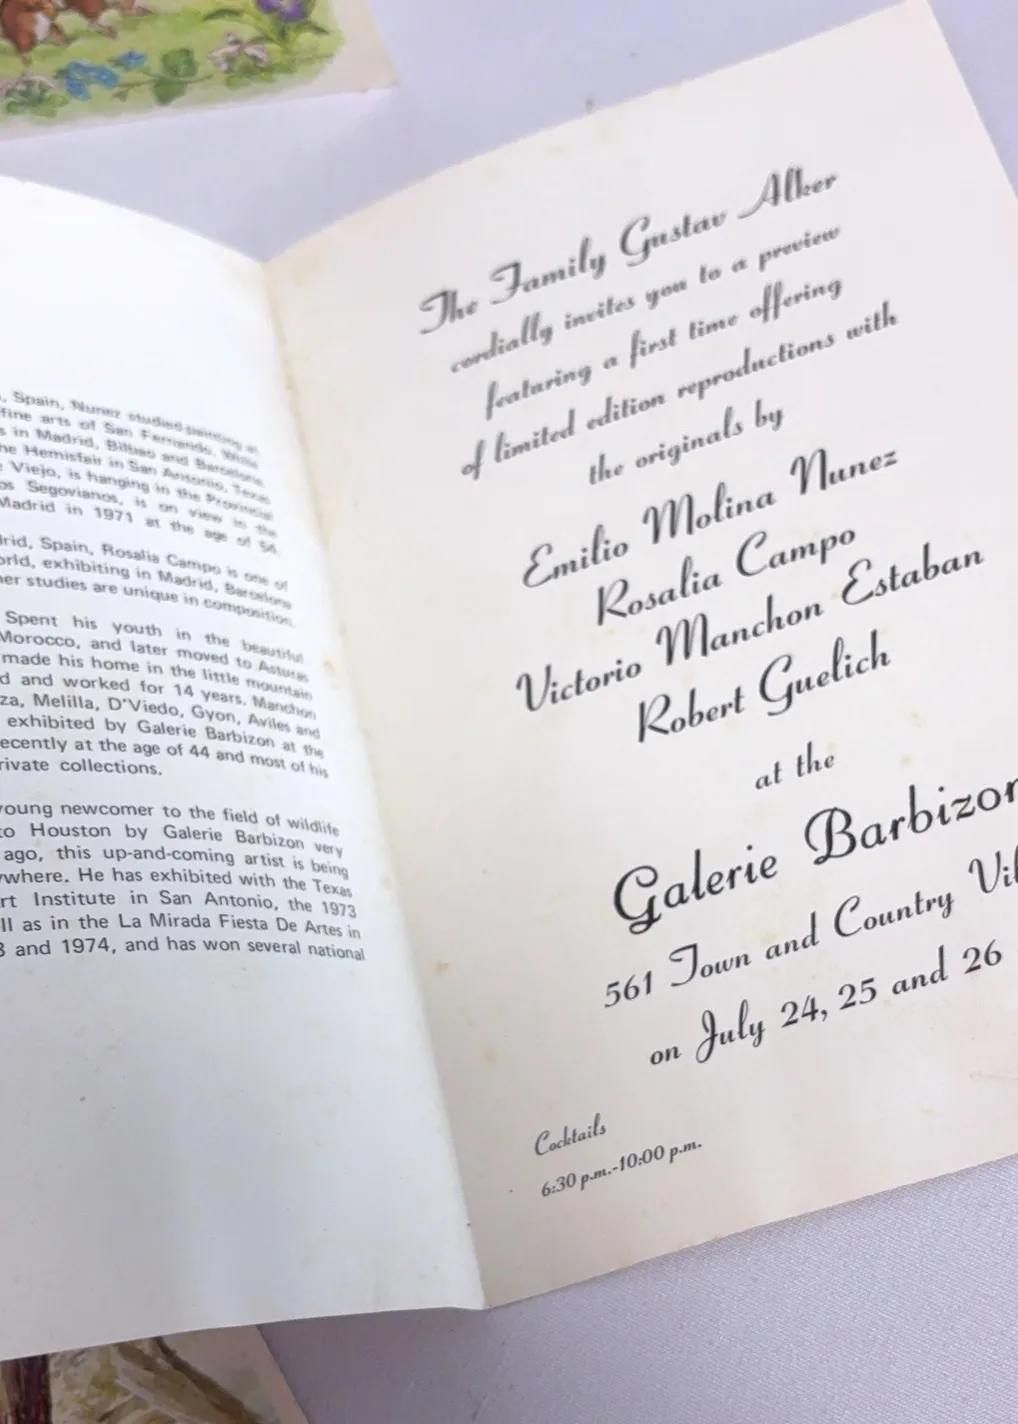 , Spain, Nunez studied painting at
fine arts of San Fernando. While
s in Madrid, Bilbao and Barcelona
he Hemisfair in San Antonio, Texas
Viejo, is hanging in the Provincial
os Segovianos, is on view in the
Madrid in 1971 at the age of 54.
drid, Spain, Rosalia Campo is one of
orld, exhibiting in Madrid, Barcelona
her studies are unique in composition.
Spent his youth in the beautiful
Morocco, and later moved to Asturas
made his home in the little mountain
d and worked for 14 years. Manchon
za, Melilla, D'Viedo, Gyon, Aviles and
exhibited by Galerie Barbizon at the
ecently at the age of 44 and most of his
rivate collections.
young newcomer to the field of wildlife
to Houston by Galerie Barbizon very
ago, this up-and-coming artist is being
ywhere. He has exhibited with the Texas
rt Institute in San Antonio, the 1973
ll as in the La Mirada Fiesta De Artes in
3 and 1974, and has won several national
The Family Gustav Alker
cordially invites you to a preview
featuring a first time offering
of limited edition reproductions with
the originals by
Emilio Molina Nunez
Rosalia Campo
Victorio Manchon Estaban
Robert Guelich
at the
Galerie Barbizon
561 Town and Country Vil
on July 24, 25 and 26
Cocktails
6:30 p.m.-10:00 p.m.